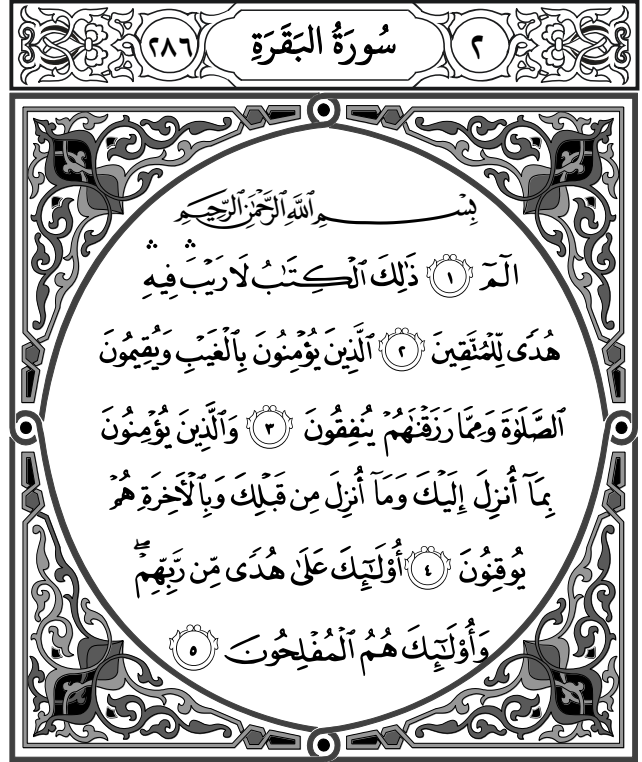 ٢ سُورَةُ البَقَرَةِ ٢٨٦
بِسْمِ ٱللَّهِ ٱلرَّحْمَٰنِ ٱلرَّحِيمِ
الٓمٓ ١ ذَٰلِكَ ٱلْكِتَٰبُ لَا رَيْبَ ۛ فِيهِ ۛ
هُدًى لِّلْمُتَّقِينَ ٢ ٱلَّذِينَ يُؤْمِنُونَ بِٱلْغَيْبِ وَيُقِيمُونَ
ٱلصَّلَوٰةَ وَمِمَّا رَزَقْنَٰهُمْ يُنفِقُونَ ٣ وَٱلَّذِينَ يُؤْمِنُونَ
بِمَآ أُنزِلَ إِلَيْكَ وَمَآ أُنزِلَ مِن قَبْلِكَ وَبِٱلْأَخِرَةِ هُمْ
يُوقِنُونَ ٤ أُوْلَٰٓئِكَ عَلَىٰ هُدًى مِّن رَّبِّهِمْ ۖ
وَأُوْلَٰٓئِكَ هُمُ ٱلْمُفْلِحُونَ ٥